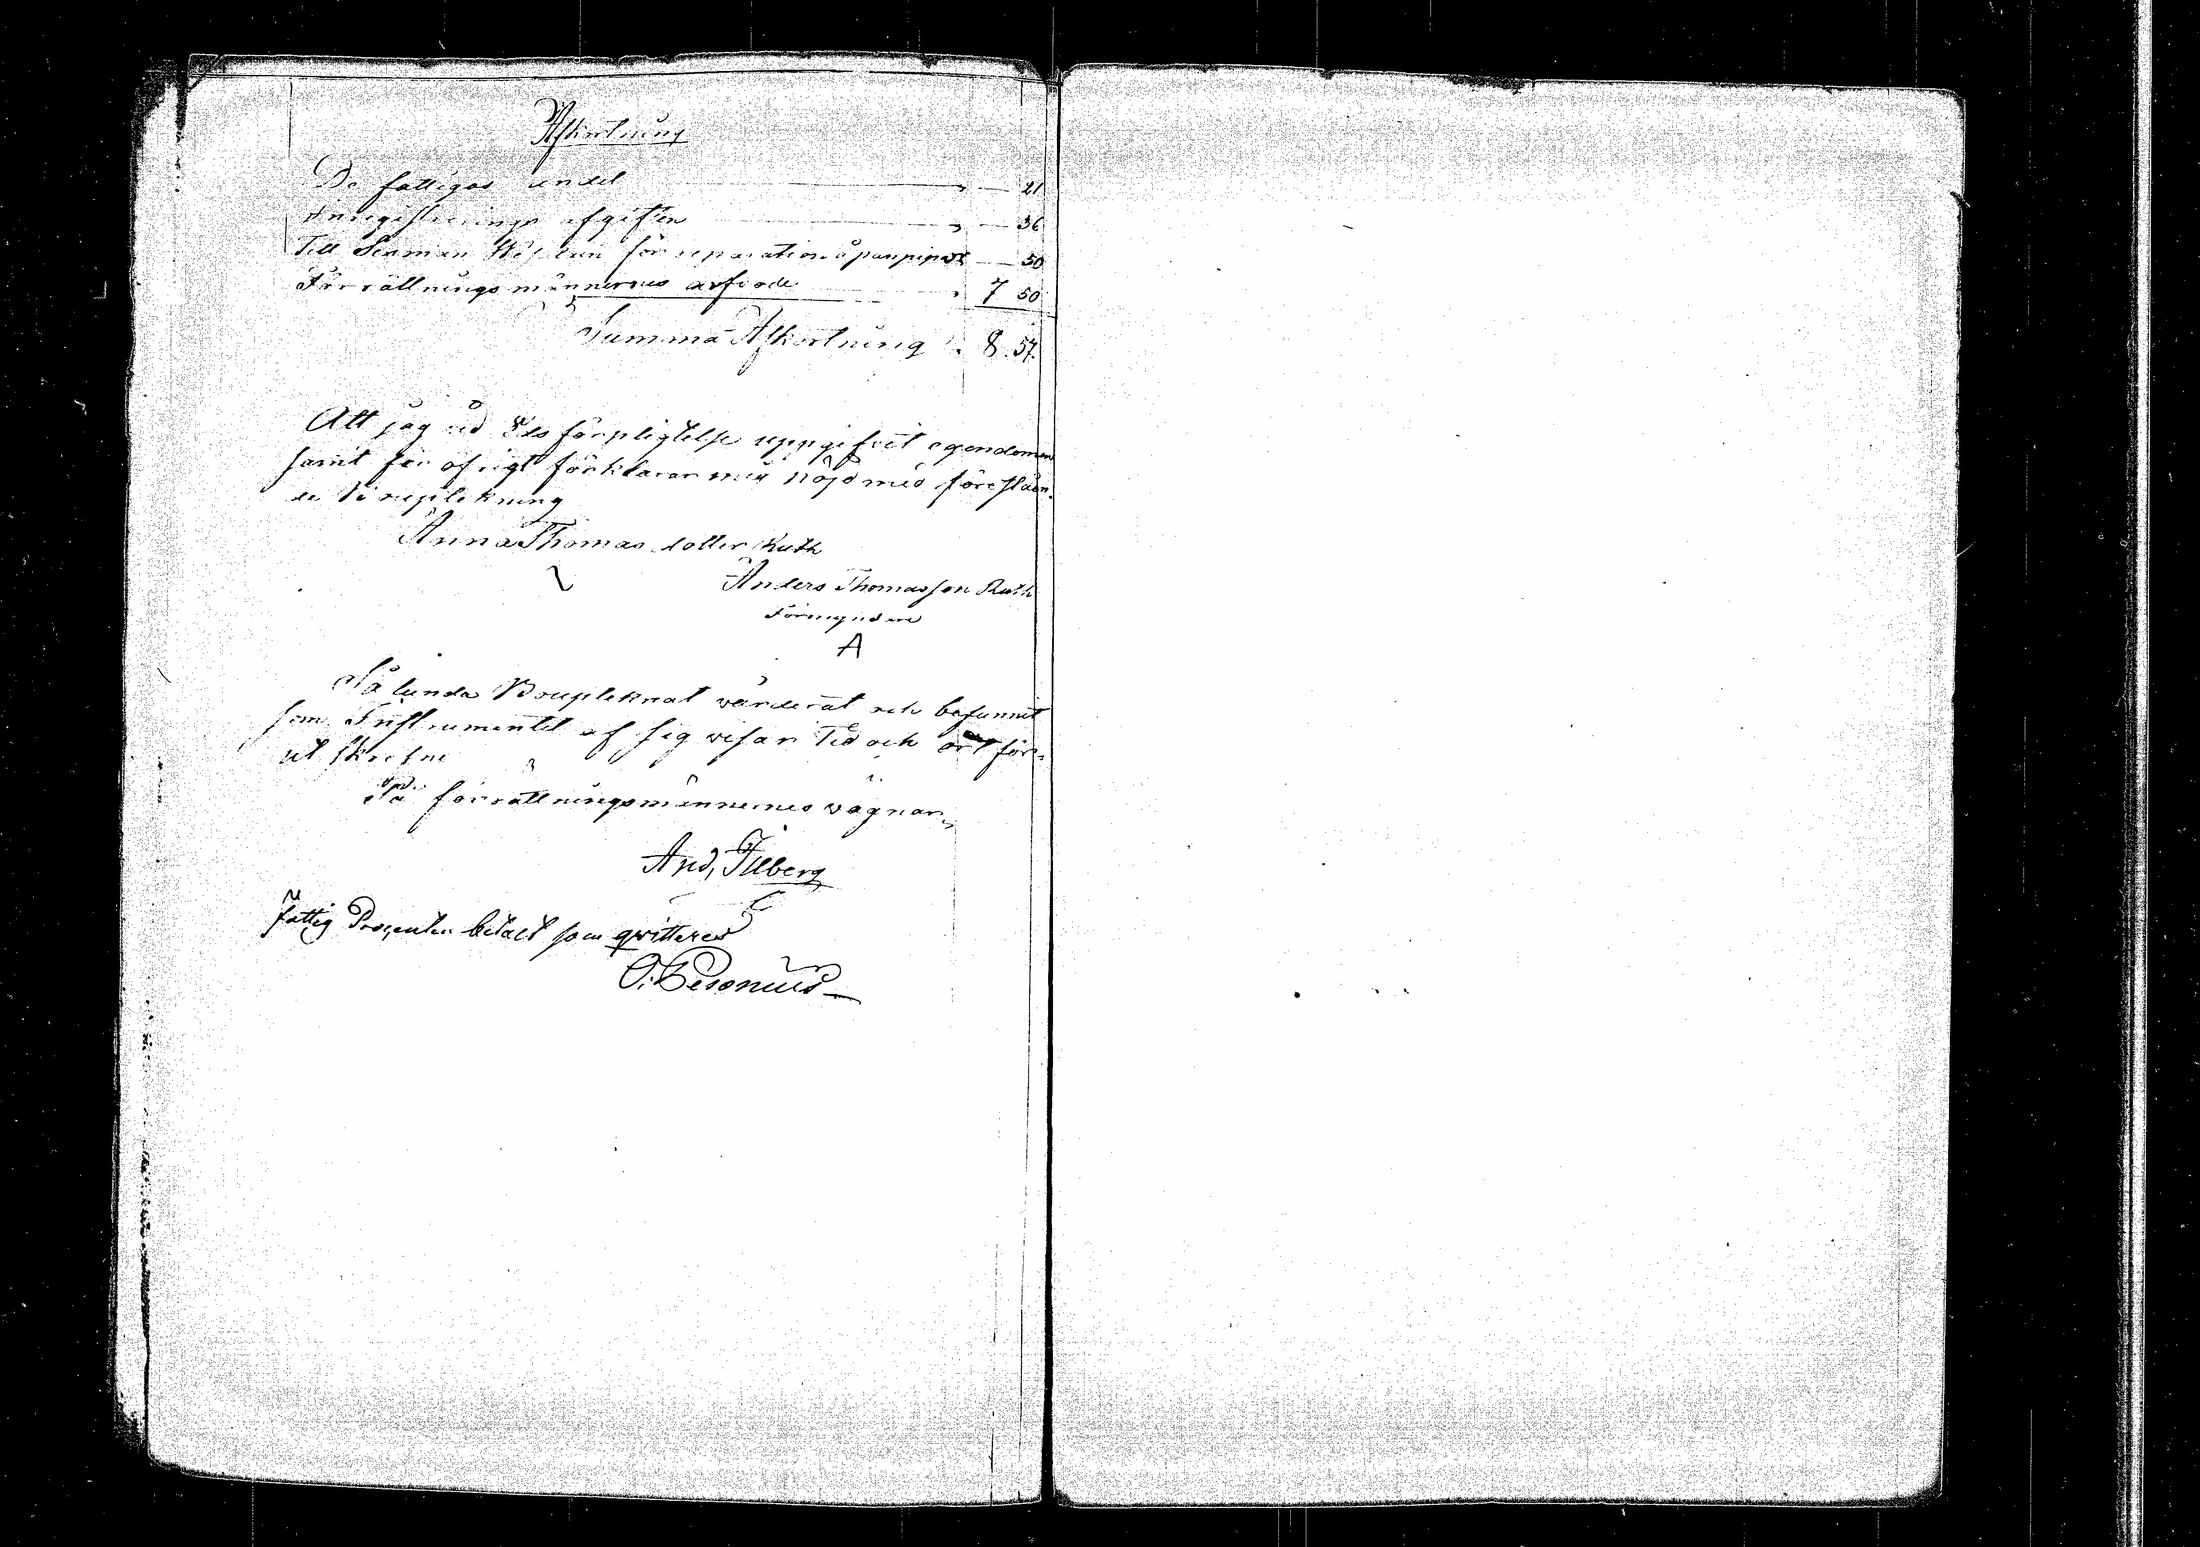 Afkortning
De fattigas andel " — 21
Inregistrerings afgiften " — 36
Till Sexman för reparation å pannpipor — 50
Förrättningsmännernes arfvode " 7 50
Summa Afkortning " 8. 57.
Att jag vid Eds förpligtelse uppgifvit egendomen
samt för öfrigt förklarar mig nöjd med föreståen-
de Boupptekning
Anna Thomas dotter Ruth
Anders Thomasson Ruth
Förmyndare
A
Sålunda Boupteknat värderat och befunnit
som Instrumentet af sig visar Tid och ort för-
ut skrefne
På förrättningsmännernes vägnar,
And, Tilberg
Fattig Procenten betalt som qvitteras
O. Pesonius